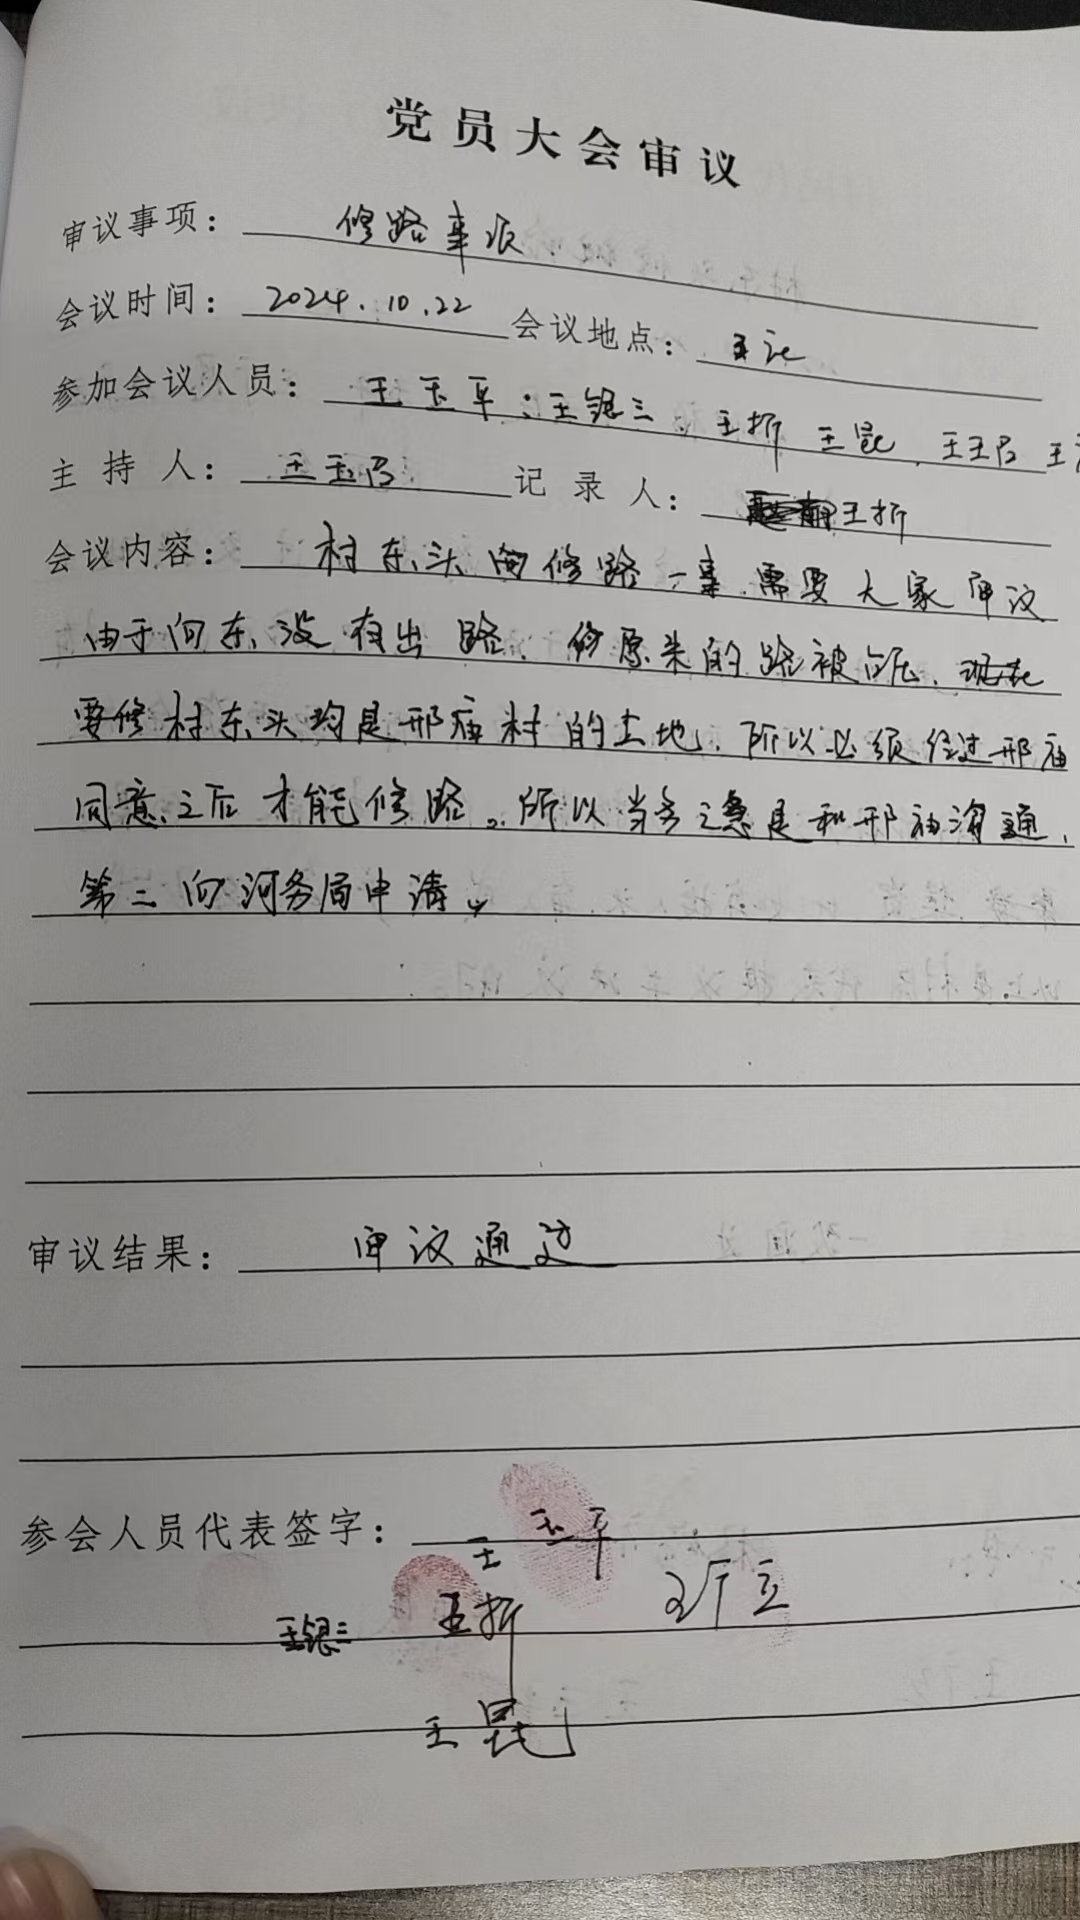 党员大会审议
审议事项： 修路事项
会议时间： 2024.10.22 会议地点： 王论
参加会议人员： 王玉平；王银三、王折 王昆、王玉乃 王
主 持 人： 王玉乃 记 录 人： 王折
会议内容： 村东头向修路一事需要大家审议
由于向东没有出路、修原来的路被，现在
要修村东头均是邢庙村的土地，所以必须经过邢庙
同意之后才能修路。所以当务之急是和邢庙沟通，
第二向河务局申请。
审议结果： 审议通过
参会人员代表签字： 王玉平
王银三 王折
王昆